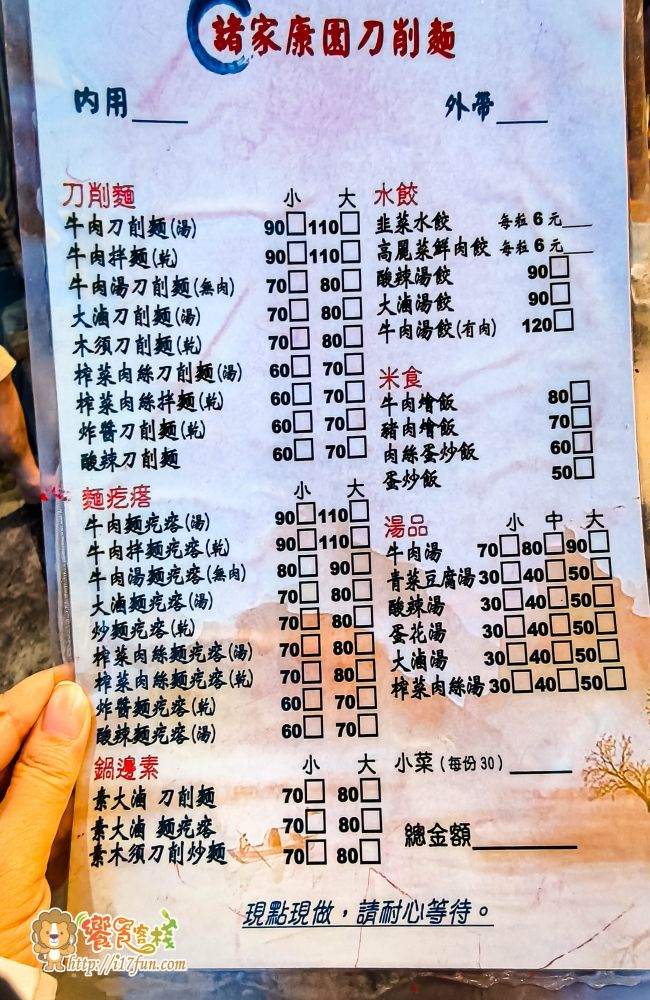 諸家康園刀削麵
內用___ 外帶___
刀削麵 小 大
牛肉刀削麵(湯) 90□110□
牛肉拌麵(乾) 90□110□
牛肉湯刀削麵(無肉) 70□ 80□
大滷刀削麵(湯) 70□ 80□
木須刀削麵(乾) 70□ 80□
榨菜肉絲刀削麵(湯) 60□ 70□
榨菜肉絲拌麵(乾) 60□ 70□
炸醬刀削麵(乾) 60□ 70□
酸辣刀削麵 60□ 70□
麵疙瘩 小 大
牛肉麵疙瘩(湯) 90□110□
牛肉拌麵疙瘩(乾) 90□110□
牛肉湯麵疙瘩(無肉) 80□ 90□
大滷麵疙瘩(湯) 70□ 80□
炒麵疙瘩(乾) 70□ 80□
榨菜肉絲麵疙瘩(湯) 70□ 80□
榨菜肉絲麵疙瘩(乾) 70□ 80□
炸醬麵疙瘩(乾) 60□ 70□
酸辣麵疙瘩(湯) 60□ 70□
鍋邊素 小 大
素大滷 刀削麵 70□ 80□
素大滷 麵疙瘩 70□ 80□
素木須刀削炒麵 70□ 80□
水餃
韭菜水餃 每粒 6 元___
高麗菜鮮肉餃 每粒 6 元___
酸辣湯餃 90□
大滷湯餃 90□
牛肉湯餃(有肉) 120□
米食
牛肉燴飯 80□
豬肉燴飯 70□
肉絲蛋炒飯 60□
蛋炒飯 50□
湯品 小 中 大
牛肉湯 70□80□90□
青菜豆腐湯 30□40□50□
酸辣湯 30□40□50□
蛋花湯 30□40□50□
大滷湯 30□40□50□
榨菜肉絲湯 30□40□50□
小菜(每份30)______
總金額________
現點現做，請耐心等待。
饗食客棧
http://i17fun.com